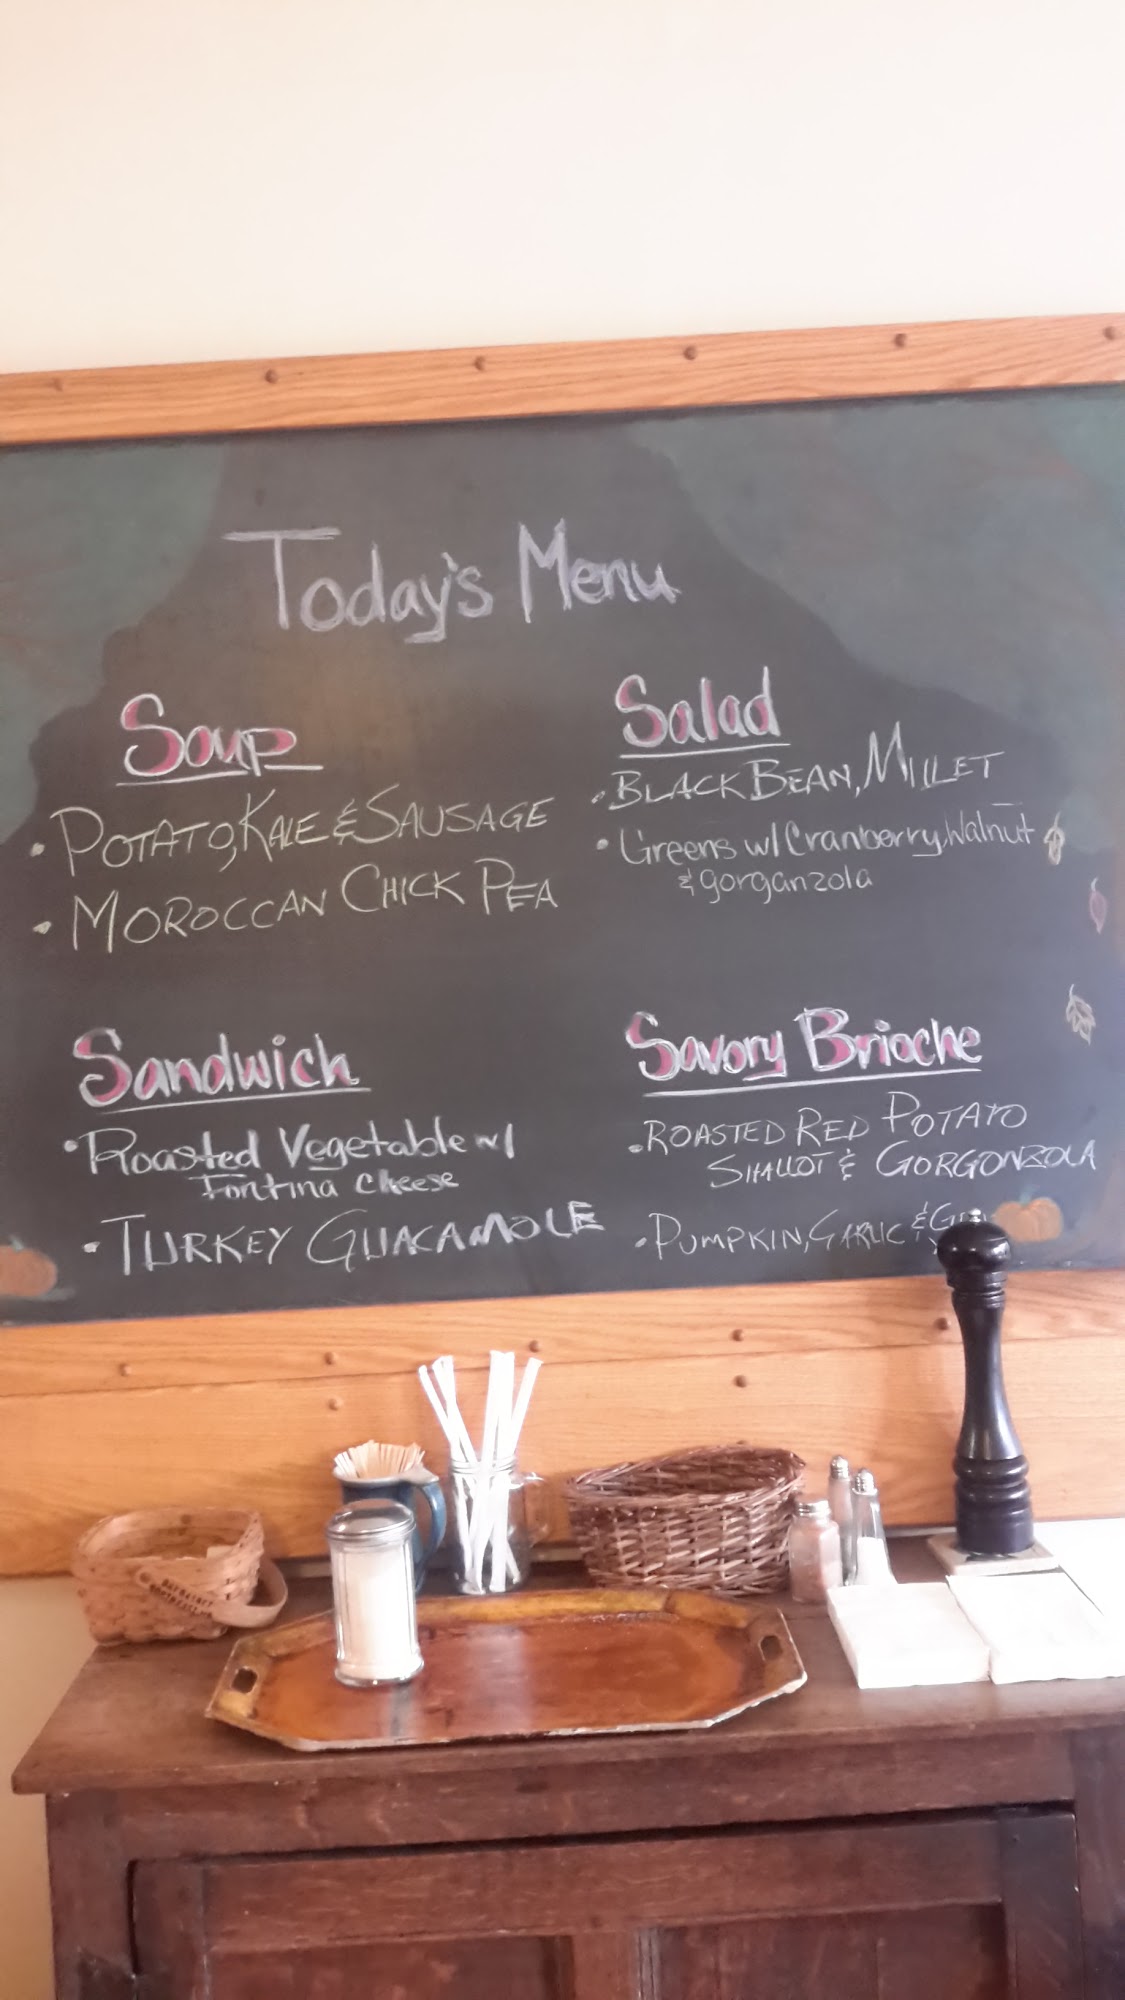 Today's Menu
Soup
• POTATO, KALE & SAUSAGE
• MOROCCAN CHICK PEA
Salad
• BLACK BEAN, MILLET
• Greens w/ Cranberry, Walnut
& gorganzola
Sandwich
• Roasted Vegetable w/
Fontina cheese
• TURKEY GUACAMOLE
Savory Brioche
• ROASTED RED POTATO
SHALLOT & GORGONZOLA
• PUMPKIN, GARLIC &